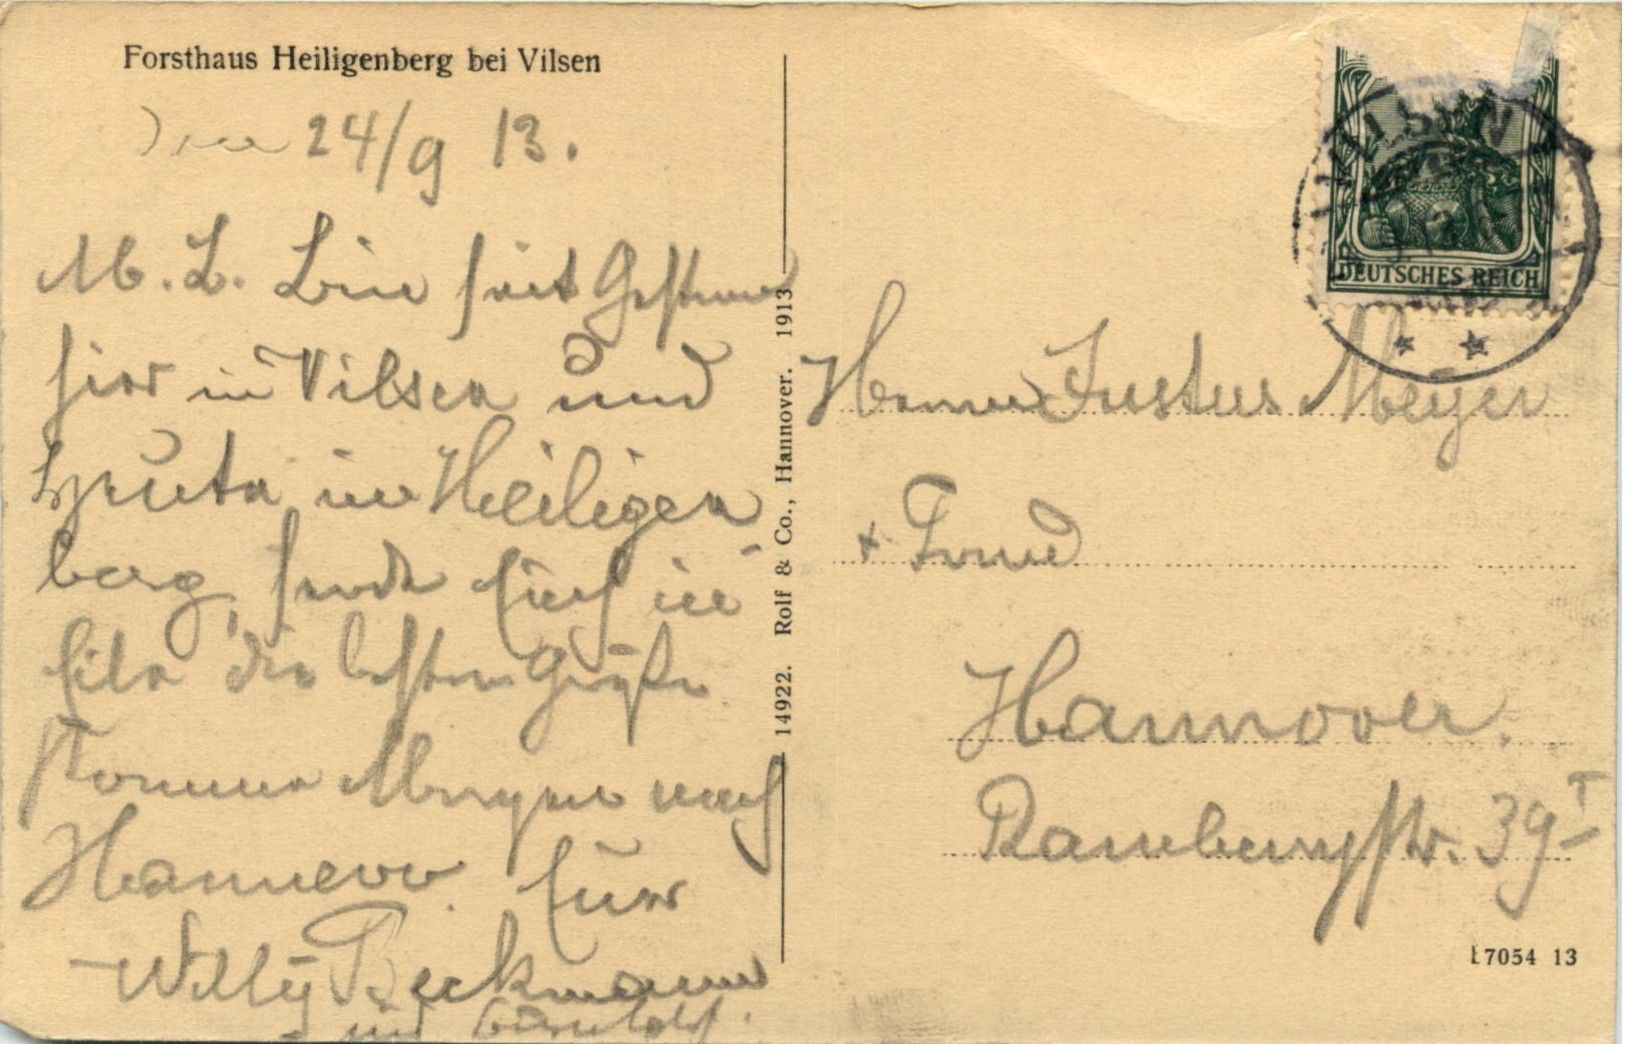 Forsthaus Heiligenberg bei Vilsen
Den 24/9 13.
M. L. Bin seit Gestern
hier in Vilsen und
heute in Heiligen
berg, sende Euch in
Eile die besten Grüße
Komme Morgen nach
Hannover. Euer
Willy Beckmann
und
14922. Rolf & Co., Hannover. 1913
VILSEN
DEUTSCHES REICH
Herrn Justus Meyer
+ Frau
Hannover.
Rambergstr. 39 I
17054 13